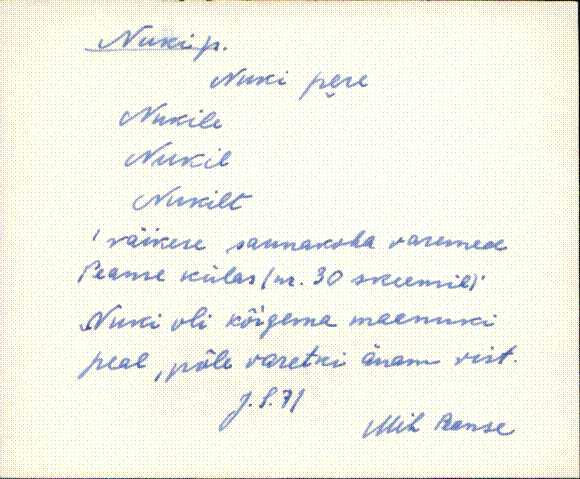 Nuki p.
Nuki pere
Nukile
Nukil
Nukilt
'väikese saunakoha varemed
Peanse külas (nr. 30 skeemil)'
Nuki oli kõ̭igema maenuki
peal, põle varetki änam vist.
J.S.71
Mih Peanse